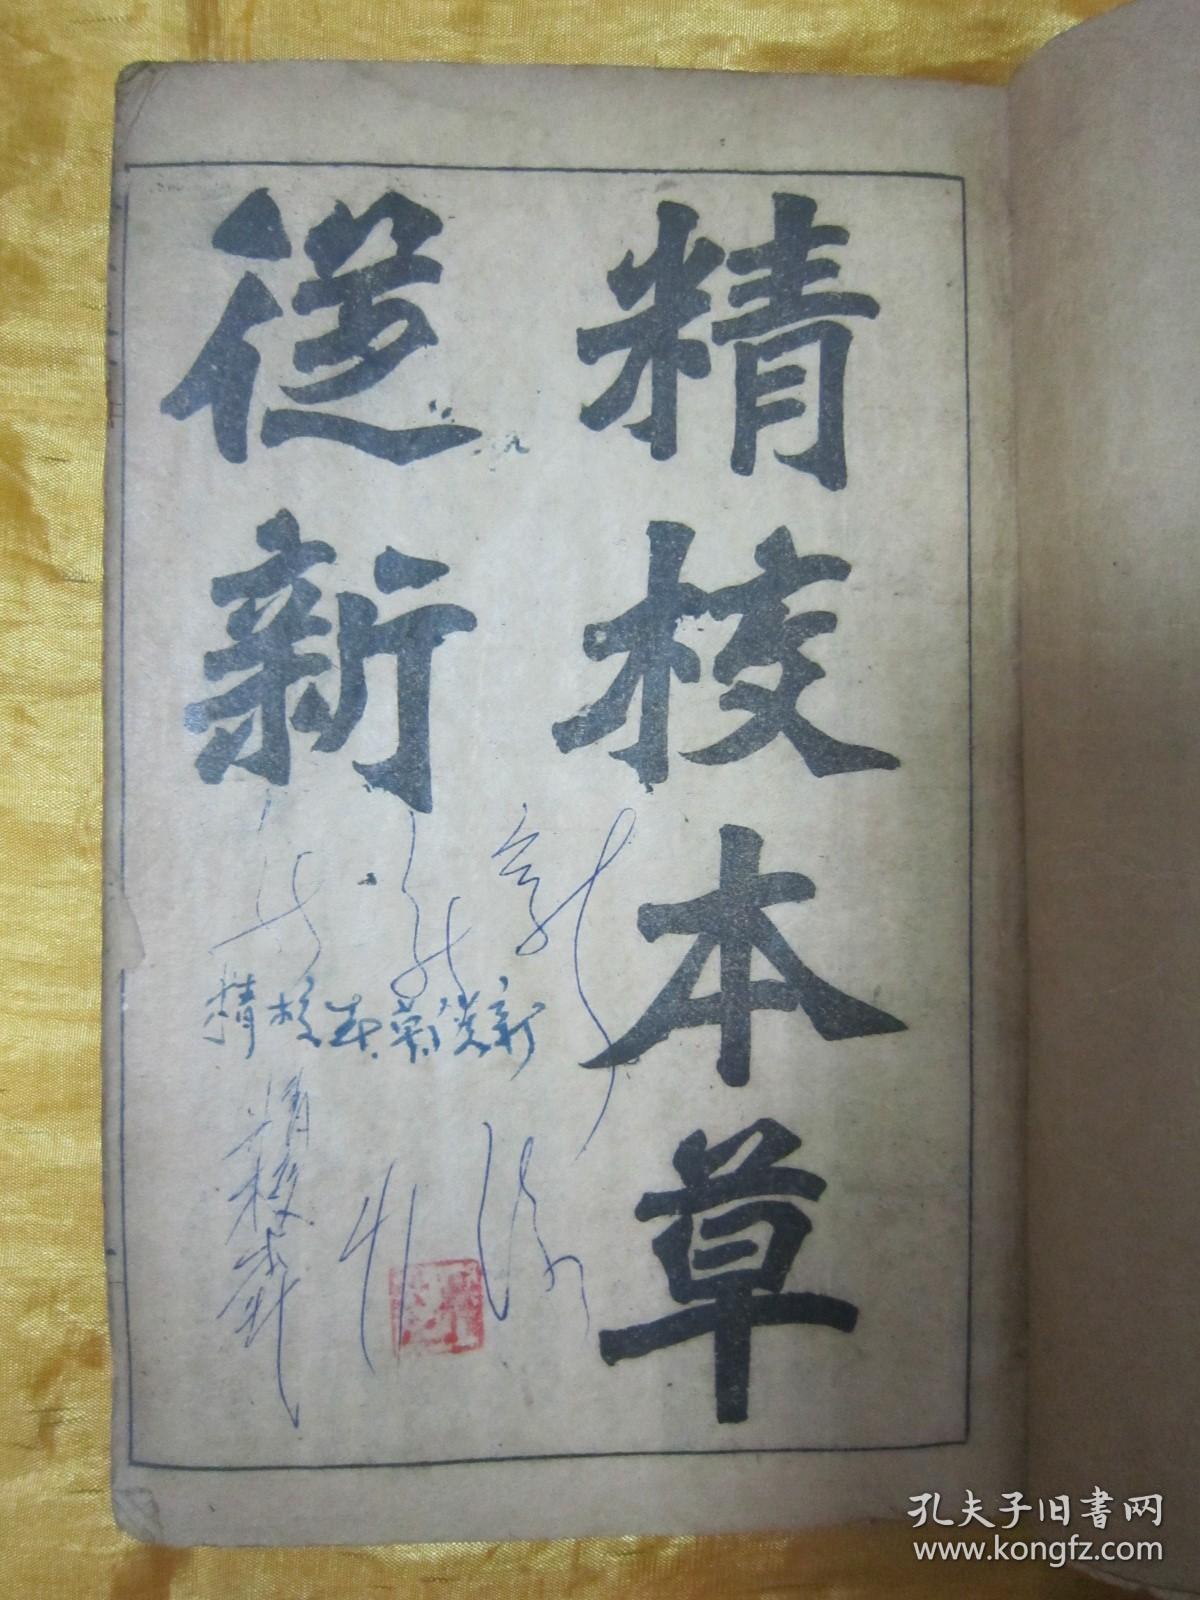 精校本草
從新
精校本草從新
精校本草
孔夫子旧書网
www.kongfz.com